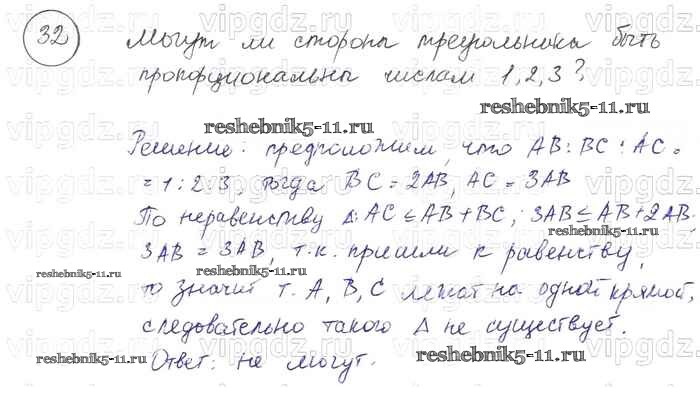 32 Могут ли стороны треугольника быть
пропорциональны числам 1, 2, 3?
reshebnik5-11.ru
reshebnik5-11.ru
Решение: предположим, что AB : BC : AC =
= 1 : 2 : 3, тогда BC = 2AB, AC = 3AB
По неравенству Δ: AC ≤ AB + BC; 3AB ≤ AB + 2AB,
3AB = 3AB, т.к. пришли к равенству,
reshebnik5-11.ru
reshebnik5-11.ru
то значит т. A, B, C лежат на одной прямой,
следовательно такого Δ не существует.
Ответ: не могут.
reshebnik5-11.ru
reshebnik5-11.ru